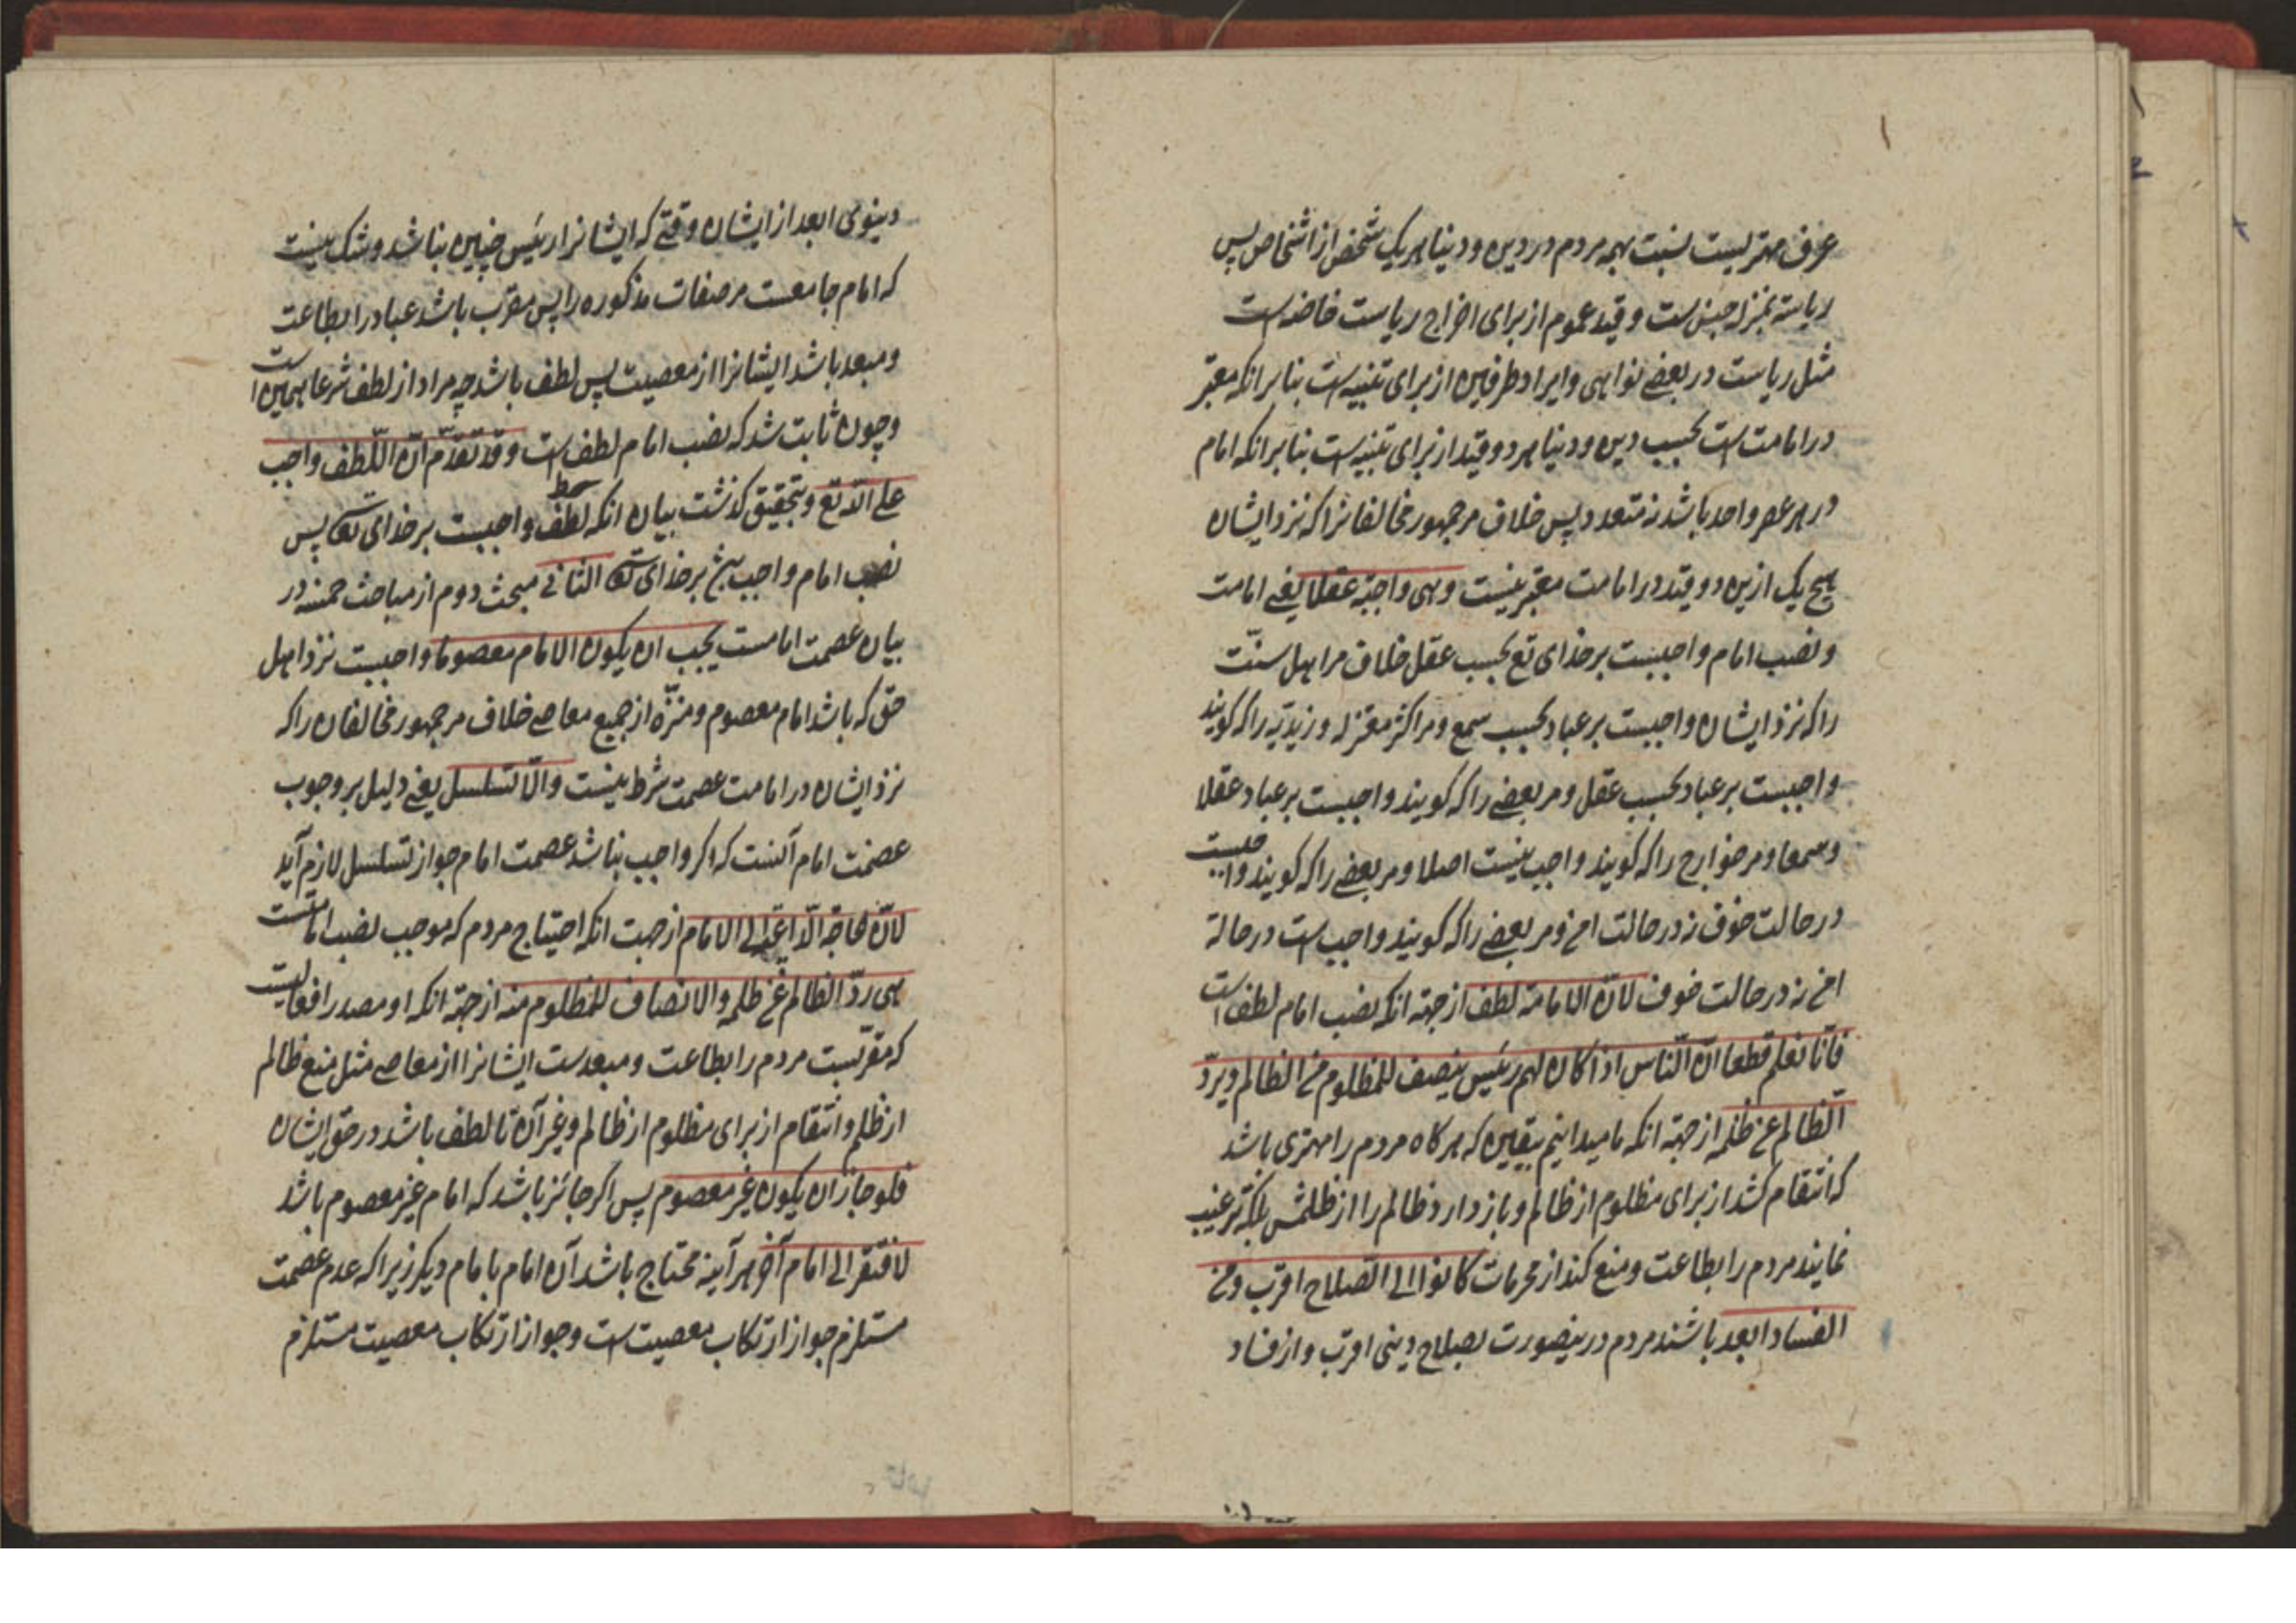 عرف مهتریست نسبت بهمه مردم در دین و دنیا هر یک شخص از اشخاص پس
ریاسة بمنزله جنس است و قید عموم از برای اخراج ریاست خاصه است
مثل ریاست در بعضے نواهی و ایراد طرفین از برای تنبیه است بنابرانکه معتبر
در امامت است بحسب دین و دنیا هر دو قید از برای تنبیه است بنابرانکه امام
در هر عصر واحد باشد نه متعدد پس خلاف مر جمهور مخالفانرا که نزد ایشان
هیچ یک ازین دو قید در امامت معتبر نیست وهی واجبة عقلا یعنے امامت
و نصب امام واجبست بر خدای تع بحسب عقل خلاف مر اهل سنّت
را که نزد ایشان واجبست بر عباد بحسب سمع و مر اکثر معتزله و زیدیّه را که کویند
واجبست بر عباد بحسب عقل و مر بعضے را که کویند واجبست بر عباد عقلا
و سمعا و مر خوارج را که کویند واجب نیست اصلا و مر بعضے را که کویند واجبست
در حالت خوف نه در حالت امن و مر بعضے را که کویند واجب است در حالة
امن نه در حالت خوف لانّ الامامة لطف از جهة انکه نصب امام لطف است
فانّا نعلم قطعا انّ النّاس اذا کان لهم رئیس ینصف للمظلوم من الظالم و یردّ
الظالم عن ظلمه از جهة انکه ما میدانیم بیقین که هر کاه مردم را مهتری باشد
که انتقام کشد از برای مظلوم از ظالم و باز دارد ظالم را از ظلمش بلکه ترغیب
نمایند مردم را بطاعت و منع کند از محرمات کانوا الی الصّلاح اقرب و من
الفساد ابعد باشند مردم درینصورت بصلاح دینی اقرب و از فساد
دینوی ابعد از ایشان وقتے که ایشانرا رئیس چنین نباشد و شک نیست
که امام جامعست مر صفات مذکوره را پس مقرب باشد عباد را بطاعت
و مبعد باشد ایشانرا از معصیت پس لطف باشد چه مراد از لطف شرعا همین است
و چون ثابت شد که نصب امام لطف است و قد تقدّم انّ اللّطف واجب
علی اللّه تع و بتحقیق کذشت بیان انکه لطف واجبست بر خدای تعه پس
نصب امام واجب بر خدای تعه الثانی مبحث دوم از مباحث خمسه در
بیان عصمت امامست یجب ان یکون الامام معصوما واجبست نزد اهل
حق که باشد امام معصوم و منزّه از جمیع معاصے خلاف مر جمهور مخالفان را که
نزد ایشان در امامت عصمت شرط نیست والّا لتسلسل یعنے دلیل بر وجوب
عصمت امام آنست که اکر واجب نباشد عصمت امام جواز تسلسل لازم آید
لانّ الحاجة الدّاعیة الی الامام از جهت انکه احتیاج مردم که موجب نصب امامست
هی ردّ الظالم عن ظلمه والانصاف للمظلوم منه از جهة انکه او مصدر افعالیست
که مقرّبست مردم را بطاعت و مبعدست ایشانرا از معاصے مثل منع ظالم
از ظلم و انتقام از برای مظلوم از ظالم و غیر آن تا لطف باشد در حق ایشان
فلو جاز ان یکون غیر معصوم پس اکر جائز باشد که امام غیر معصوم باشد
لافتقر الی امام آخر هر آینه محتاج باشد آن امام بامام دیکر زیرا که عدم عصمت
مستلزم جواز ارتکاب معصیت است و جواز ارتکاب معصیت مستلزم